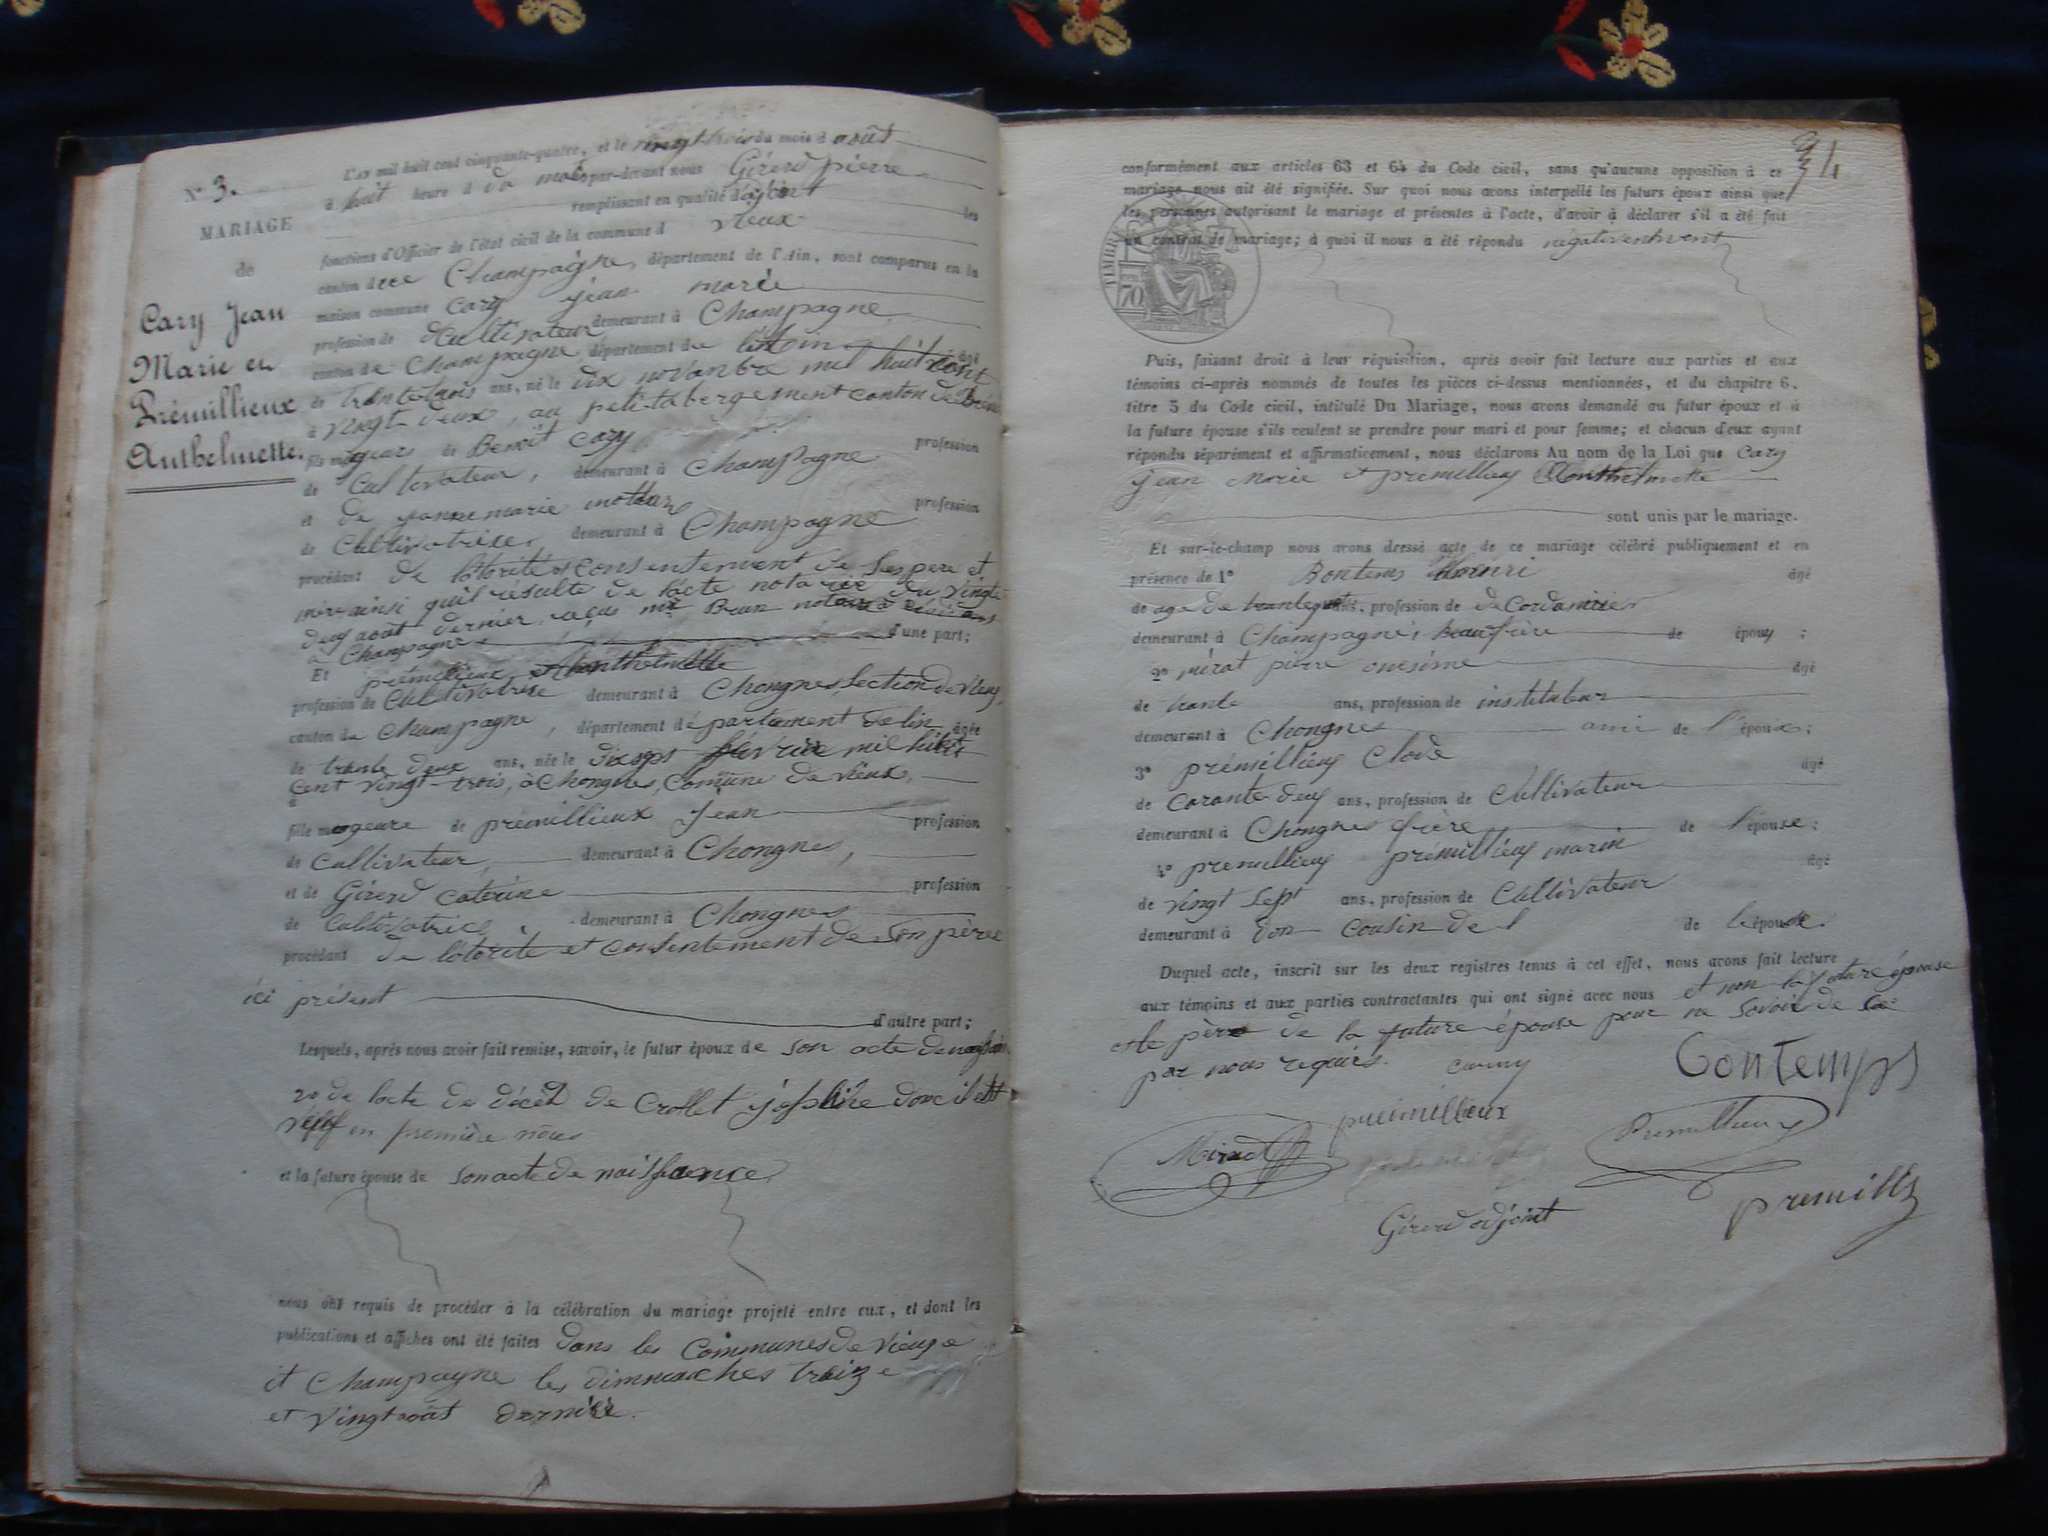 N° 3.
MARIAGE
de
Cary Jean
Marie et
Prémillieux
Anthelmette.
L'an mil huit cent cinquante-quatre, et le vingt trois du mois d août
à huit heure d du matin par-devant nous Girerd pierre
remplissant en qualité d'adjoint les
fonctions d'Officier de l'état civil de la commune d vieux
canton de Champagne, département de l'Ain, sont comparus en la
maison commune Cary jean marie
profession de Cultivateur demeurant à Champagne
canton de Champagne, département de l'ain âgé
de trante trois ans, né le dix novanbre mil huit cent
à vingt deux, au petit abergement canton de
fils mageur de Benoît Cary profession
de Cultivateur, demeurant à Champagne
et de jannemarie profession
de Cultivatrice, demeurant à Champagne
procédant de lotorité et consentement de ses pere et
mère ainsi qu'il résulte de l'acte notarié du vingt
deux août dernier, reçus mtre Brun notaire
à Champagne d'une part;
Et prémillieux Anthelmette
profession de Cultivatrise demeurant à Chongnes, section de vieux,
canton de Champagne, département département de lin âgée
de trante deux ans, née le dix sept février mil huit
cent vingt-trois, à Chongnes, Commune de vieux,
fille mageure de prémillieux jean profession
de Cultivateur, demeurant à Chongnes,
et de Girerd caterine profession
de Cultivatrice demeurant à Chongnes
procédant de lotorité et consentement de son père
ici présent
d'autre part;
Lesquels, après nous avoir fait remise, savoir, le futur époux de son acte de naissance
2° de lacte de décèt de Crollet dont il est
veuf en première
et la future épouse de son acte de naissance
nous ont requis de procéder à la célébration du mariage projeté entre eux, et dont les
publications et affiches ont été faites dans les Communes de vieux
et Champagne les dimmanches treize
et vingt août dernier.
34
conformément aux articles 63 et 64 du Code civil, sans qu'aucune opposition à ce
mariage nous ait été signifiée. Sur quoi nous avons interpellé les futurs époux ainsi que
les personnes autorisant le mariage et présentes à l'acte, d'avoir à déclarer s'il a été fait
un contrat de mariage; à quoi il nous a été répondu négativement
TIMBRE
70
Puis, faisant droit à leur réquisition, après avoir fait lecture aux parties et aux
témoins ci-après nommés de toutes les pièces ci-dessus mentionnées, et du chapitre 6,
titre 5 du Code civil, intitulé Du Mariage, nous avons demandé au futur époux et à
la future épouse s'ils veulent se prendre pour mari et pour femme; et chacun d'eux ayant
répondu séparément et affirmativement, nous déclarons Au nom de la Loi que Cary
jean Marie et prémillieux Anthelmette
sont unis par le mariage.
Et sur-le-champ nous avons dressé acte de ce mariage célébré publiquement et en
présence de 1° Bontems henri âgé
de age de ans, profession de de Cordannier
demeurant à Champagne, beaufrère de époux;
2° mirat pièrre onesime âgé
de trante ans, profession de instituteur
demeurant à Chongnes ami de l'époux;
3° prémillieux Clode âgé
de carante deux ans, profession de Cultivateur
demeurant à Chongnes frère de l'épouse;
4° premillieux prémillieux marin âgé
de vingt sept ans, profession de Cultivateur
demeurant à don cousin de l de l'épouse.
Duquel acte, inscrit sur les deux registres tenus à cet effet, nous avons fait lecture
aux témoins et aux parties contractantes qui ont signé avec nous et non la future épouse
et le père de la future épouse pour ne savoir de ce
par nous requis.
Contemps
prémillieux
Mirad
Premillieux
Girerd adjoint
premill